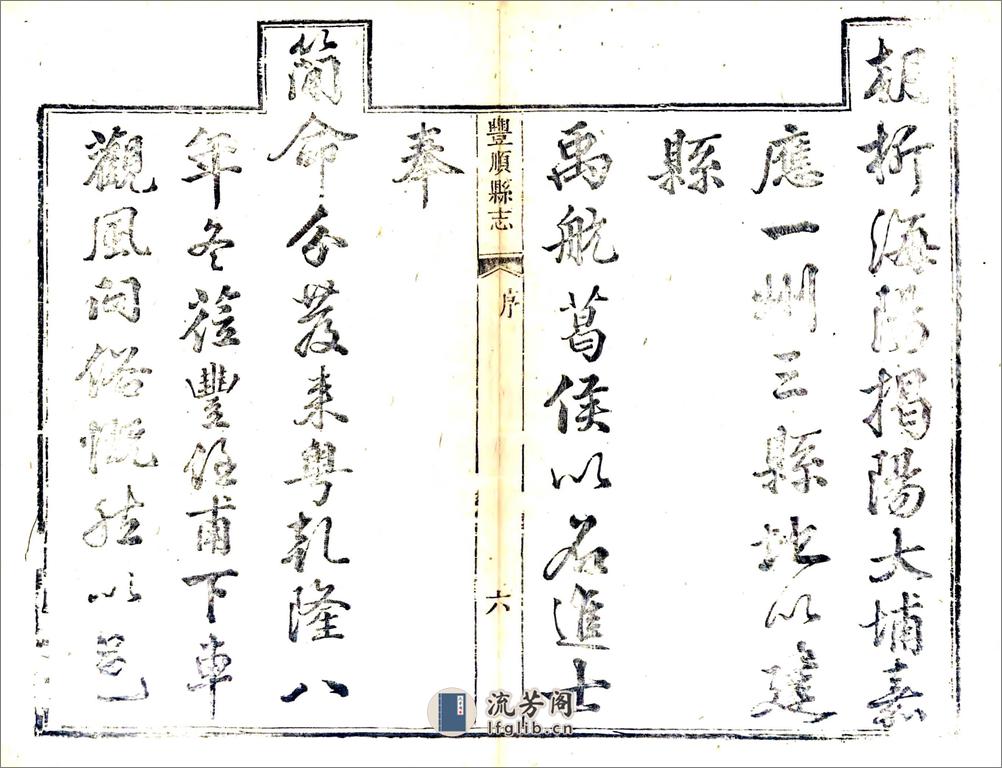 朝析海陽揭陽大埔嘉
應一州三縣地以建
縣
禹航葛侯以名進士
豐順縣志
序
六
奉
簡命分發来粤乾隆八
年冬蒞豐任甫下車
觀風问俗慨然以邑
流芳阁
lfglib.cn